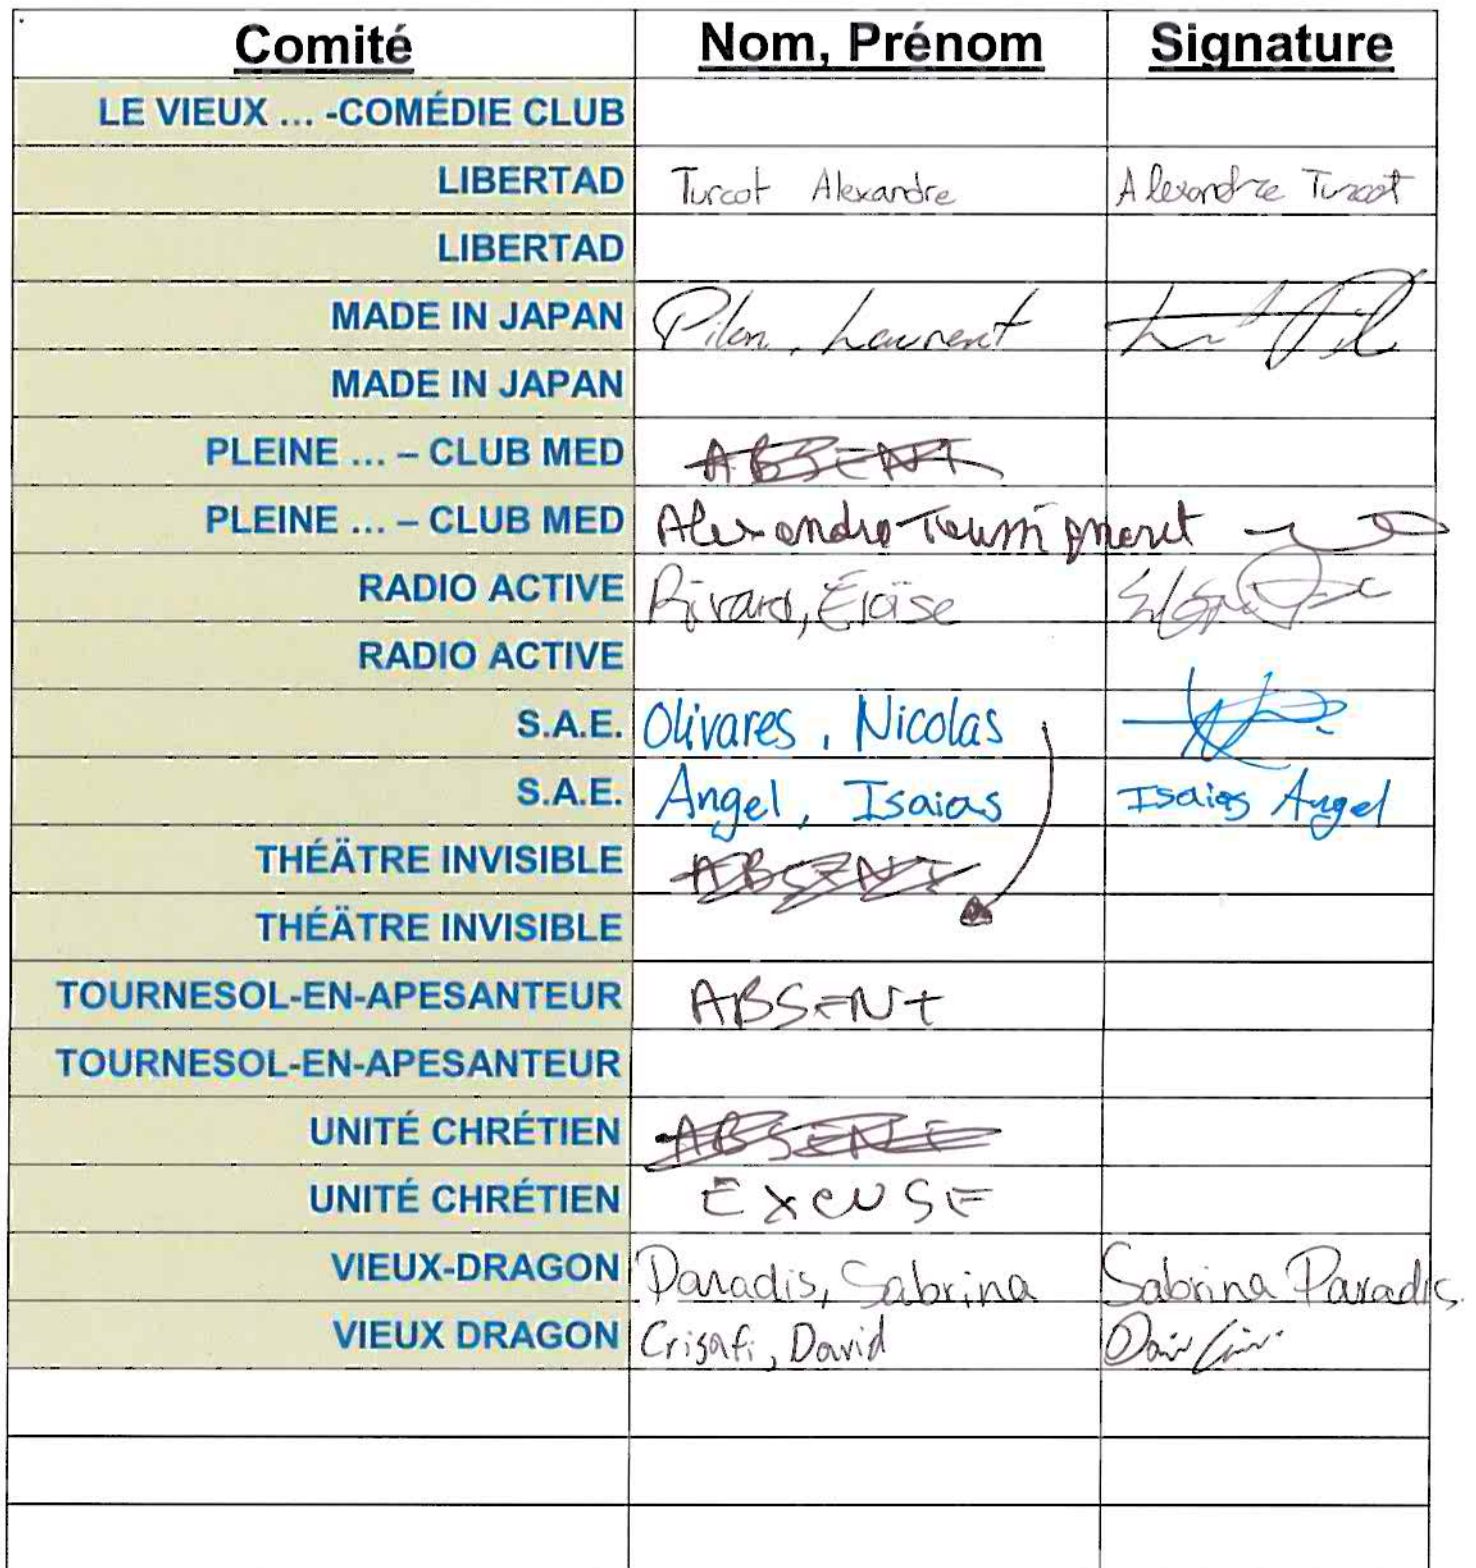 Comité Nom, Prénom Signature
LE VIEUX ... -COMÉDIE CLUB
LIBERTAD Turcot Alexandre Alexandre Turcot
LIBERTAD
MADE IN JAPAN Pilon, Laurent
MADE IN JAPAN
PLEINE ... – CLUB MED ABSENT
PLEINE ... – CLUB MED Alexandre Tousignant
RADIO ACTIVE Rivard, Éloïse
RADIO ACTIVE
S.A.E. Olivares, Nicolas
S.A.E. Angel, Isaias Isaias Angel
THÉÄTRE INVISIBLE ABSENT
THÉÄTRE INVISIBLE
TOURNESOL-EN-APESANTEUR ABSENT
TOURNESOL-EN-APESANTEUR
UNITÉ CHRÉTIEN ABSENT
UNITÉ CHRÉTIEN EXCUSE
VIEUX-DRAGON Paradis, Sabrina Sabrina Paradis
VIEUX DRAGON Crisafi, David